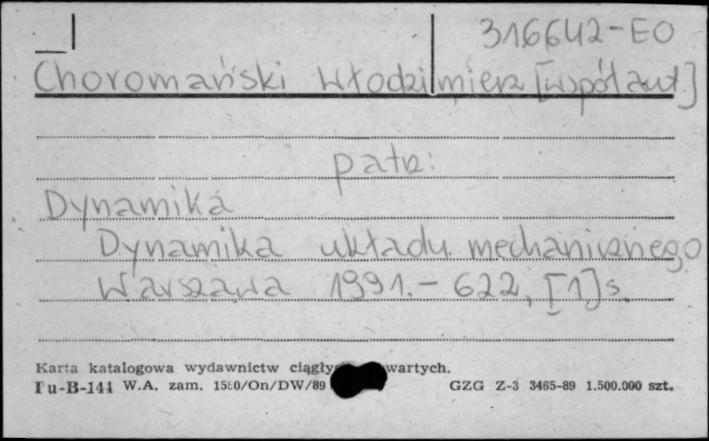 316642-EO
Choromański Włodzimierz [współaut]
patrz:
Dynamika
Dynamika układu mechanicznego
Warszawa 1991.- 622, [1] s.
Karta katalogowa wydawnictw wartych.
Pu-B-144 W.A. zam. 1580/On/DW/89 GZG Z-3 3465-89 1.500.000 szt.